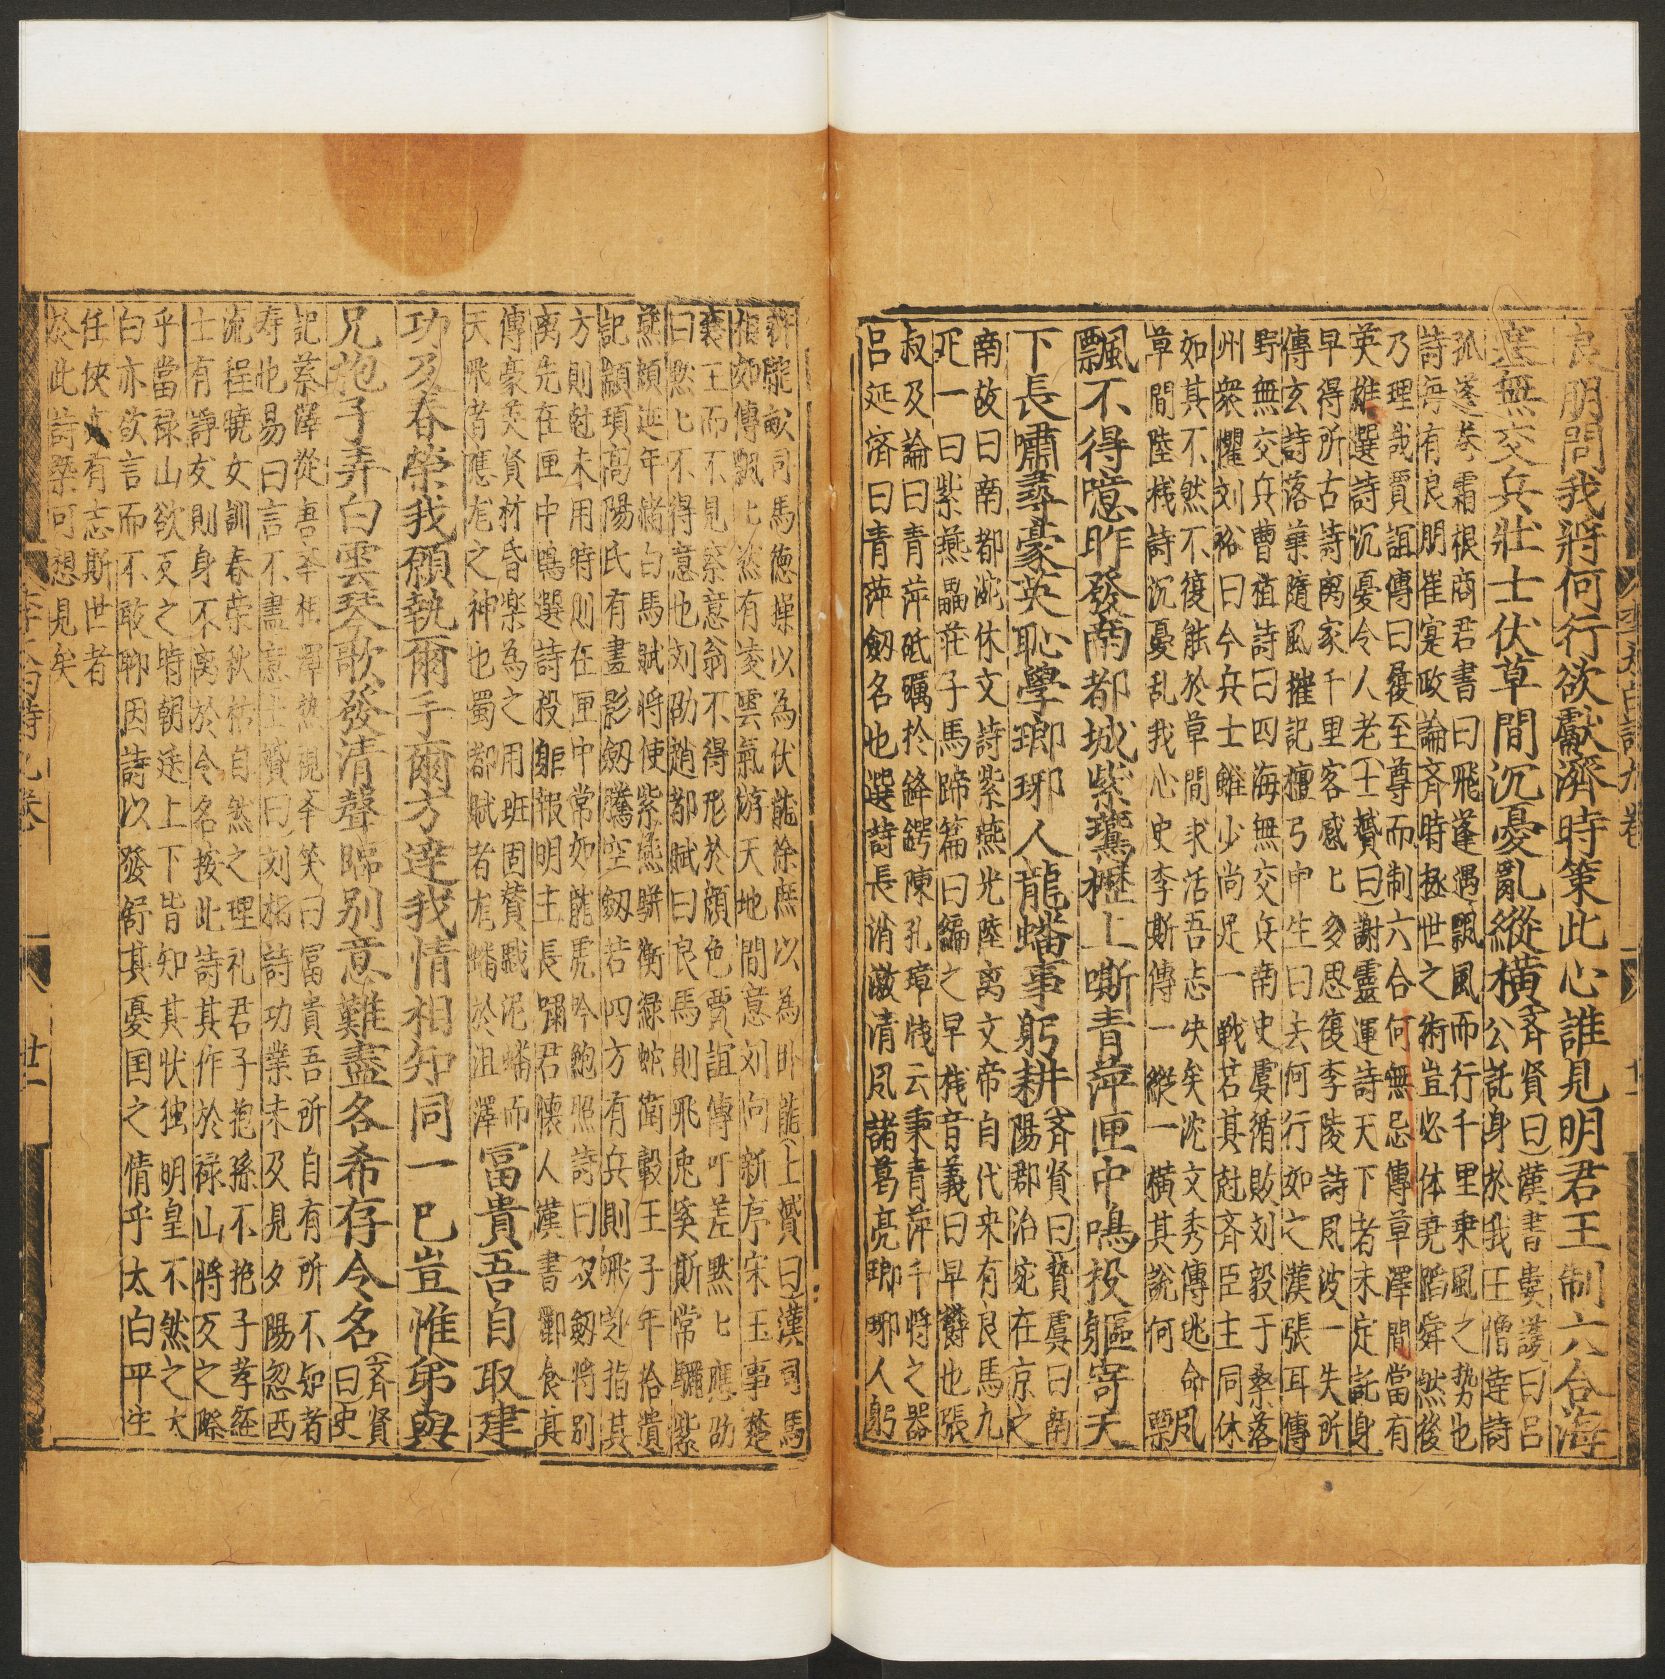 良朋問我將何行欲獻濟時策此心誰見明君王制六合海
塞無交兵壯士伏草間沉憂亂縱橫
齊賢曰漢書婁護曰呂
公託身於我王僧達詩
孤蓬卷霜根商君書曰飛蓬遇飄風而行千里乗風之势也
詩每有良朋崔寔政論斉時拯世之術豈必体堯蹈舜然後
乃理哉賈誼傳曰履至尊而制六合何無忌傳草澤間當有
英雄選詩沉憂令人老士贇曰謝靈運詩天下者未定託身
早得所古詩离家千里客慼匕多思復李陵詩風波一失所
傳玄詩落葉隨風摧記檀弓申生曰去何行如之漢張耳傳
野無交兵曹植詩曰四海無交兵南史虞循敗刘毅于桑落
州衆懼刘裕曰今兵士雖少尚足一戰若其尅斉臣主同休
如其不然不復能於草間求活吾志决矣沈文秀傳逃命風
草間陸機詩沉憂乱我心史李斯傳一縱一橫其說何
飄飄不得意昨發南都城紫鷰櫪上嘶青萍匣中鳴投軀寄天
下長嘯尋豪英恥學瑯琊人龍蟠事躬耕
斉賢曰贇虞曰南
陽郡治宛在京之
南故曰南都沈休文詩紫燕光陸离文帝自代来有良馬九
疋一曰紫燕騮莊子馬蹄篇曰編之早棧音義曰早櫪也張
叔及論曰青萍砥礪於鋒鍔陳孔璋牋云秉青萍千將之器
呂延济曰青萍劔名也選詩長消激清風諸葛亮瑯琊人躬
耕隴畝司馬德操以為伏龍徐庶以為卧龍士贇曰漢司馬
相如傳飄匕然有凌雲氣游天地間意刘向新序宋玉事楚
襄王而不見察意翁不得形於顔色賈誼傳吁嗟默匕應劭
曰默匕不得意也刘劭趙都賦曰良馬則飛兎奚斯常驪紫
燕顔延年赭白馬賦將使紫燕駢衡緑蛇衛轂王子年拾遺
記顓頊高陽氏有畫影劔騰空劔若四方有兵則飛赴指其
方則尅未用時則在匣中常如龍虎吟鮑照詩曰双劔將別
离先在匣中鳴選詩投軀報明主長嘯君懐人漢書酈食其
傳豪英賢材昏楽為之用班固賛戯泥蟠而
天飛者應尨之神也蜀都賦者尨蟠於沮澤
富貴吾自取建
功及春榮我願執爾手爾方逹我情相知同一己豈惟弟與
兄抱子弄白雲琴歌發清聲臨别意難盡各希存令名
斉賢
曰史
記蔡澤從唐李相澤熟視李笑曰富貴吾所自有所不知者
寿也易曰言不盡意士贇曰刘楨詩功業未及見夕陽忽西
流程曉女訓春荣秋枯自然之理礼君子抱孫不抱子孝経
士有諍友則身不离於令名按此詩其作於禄山將反之際
乎當禄山欲反之時朝廷上下皆知其状独明皇不然之太
白亦欲言而不敢聊因詩以發舒其憂国之情乎太白平生
任俠有志斯世者
於此詩槩可想見矣